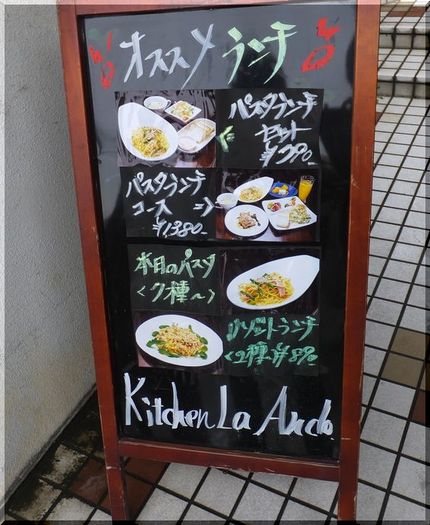 オススメ ランチ
パスタランチ
セット
パスタランチ
コース ⇒
¥1380.
本日のパスタ
<7種〜>
リゾットランチ
Kitchen La